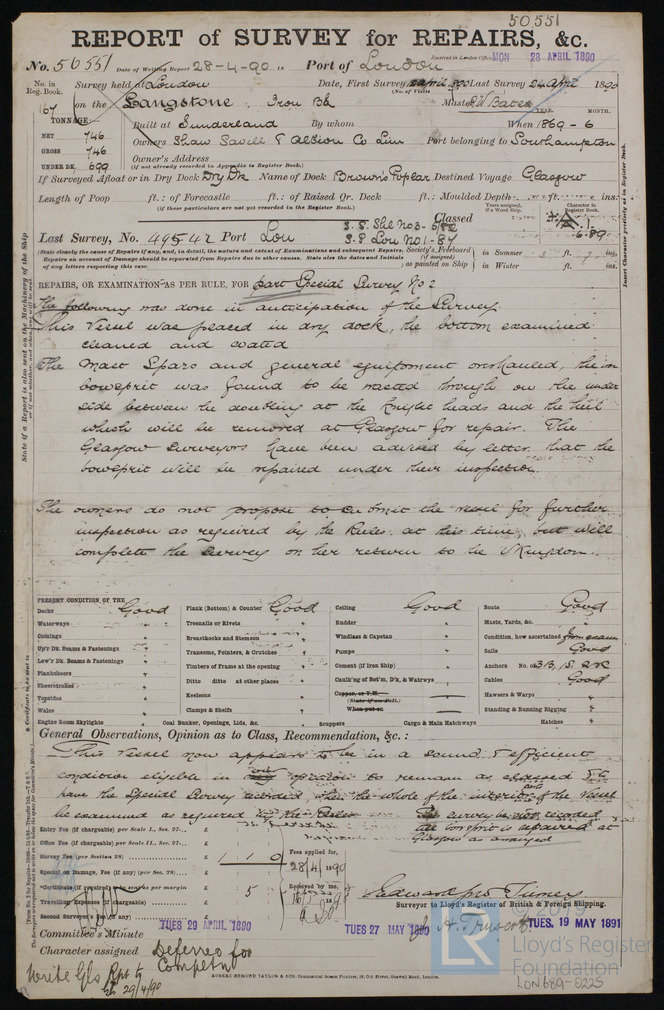 50551
REPORT of SURVEY for REPAIRS, &c.
No. 50551 Date of Writing Report 28-4-90 Port of London Received in London Office MON 28 APRIL 1890
No. in Reg. Book. Survey held at London Date, First Survey April 1890 Last Survey 24 April 1890
(No. of Visits
67 on the Langstone, Iron Bk Master W Bates YEAR. MONTH.
TONNAGE: Built at Sunderland By whom When 1869 - 6
NET 746 Owners Shaw Savill & Albion Co Lim Port belonging to Southampton
GROSS 746 Owner's Address
UNDER DK. 699 (if not already recorded in Appendix to Register Book.)
If Surveyed Afloat or in Dry Dock Dry Dk Name of Dock Brown's Poplar Destined Voyage Glasgow
Length of Poop ft.: of Forecastle ft.: of Raised Qr. Deck ft.: Moulded Depth ft. ins.
(if these particulars are not yet recorded in the Register Book.)
Years assigned, if a Wood Ship. Character in Register Book.
Classed S.S. Shl No 3 - 5/82
Last Survey, No. 49542 Port Lou S.S. Lon No 1 - 87 6.89
(State clearly the cause of Repairs if any, in detail, the nature and extent of Examinations and subsequent Repairs. Repairs on account of Damage should be separated from Repairs due to other causes. State also the dates and Initials of any letters respecting this case.
Society's Freeboard (if assigned) as painted on Ship in Summer 3 ft. 7 ins.
in Winter ft. ins.
REPAIRS, OR EXAMINATION AS PER RULE, FOR part Special Survey No 2
The following was done in anticipation of the Survey.
This Vessel was placed in dry dock, the bottom examined
cleaned and coated
The Mast Spars and general equipment overhauled, the iron
bowsprit was found to be wasted through on the under
side between the doubling at the Knight heads and the heel
which will be removed at Glasgow for repair. The
Glasgow Surveyors have been advised by letter that the
bowsprit will be repaired under their inspection.
The owners do not propose to submit the vessel for further
inspection as required by the Rules at this time, but will
complete the Survey on her return to the Kingdom.
PRESENT CONDITION OF THE
Decks Good Plank (Bottom) & Counter Good Ceiling Good Boats Good
Waterways " Treenails or Rivets " Rudder " Masts, Yards, &c. "
Comings " Breasthooks and Stemson " Windlass & Capstan " Condition, how ascertained from exam
Up'r Dk. Beams & Fastenings " Transoms, Pointers, & Crutches " Pumps " Sails Good
Low'r Dk. Beams & Fastenings " Timbers of Frame at the opening " Cement (if Iron Ship) " Anchors No. 3B, 1S, 2K
Planksheers " Ditto ditto at other places " Caulk'ng of Bot'm, D'k, & Watrwys " Cables Good
Sheerstrakes " Keelsons " Copper, or Y.M. Hawsers & Warps "
Topsides " (State if on Felt.)
Wales " Clamps & Shelfs " When put on Standing & Running Rigging "
Engine Room Skylights " Coal Bunker, Openings, Lids, &c. " Scuppers " Cargo & Main Hatchways " Hatches "
General Observations, Opinion as to Class, Recommendation, &c. :
This Vessel now appears to be in a sound & efficient
condition eligible in our opinion to remain as classed & to
have the Special Survey recorded, when the whole of the interior of the Vessel
be examined as required by the Rules. The survey be not recorded
till bowsprit is repaired at
Glasgow as arranged
Entry Fee (if chargeable) per Scale I., Sec. 27... £
Office Fee (if chargeable) per Scale II., Sec. 27... £
Survey Fee (per Section 28) £ 1 1 0 Fees applied for,
Special or Damage, Fee (if any) (per Sec. 28) £ 28/4/1890
Certificate (if required) £ 5 Received by me,
Travelling Expenses (if chargeable) £
Second Surveyor's Fee (if any) £
Edward Jno Turner
Surveyor to Lloyd's Register of British & Foreign Shipping.
Committee's Minute TUES 29 APRIL 1890 TUES 27 MAY 1890 TUES. 19 MAY 1891
Character assigned Deferred for
Completn
Write Gls Rpt
29/4/90
ROBERT EDMUND TAYLOR & SON, Commercial Steam Printers, 19, Old Street, Goswell Road, London.
LR
Lloyd's Register
Foundation
LON689-0225